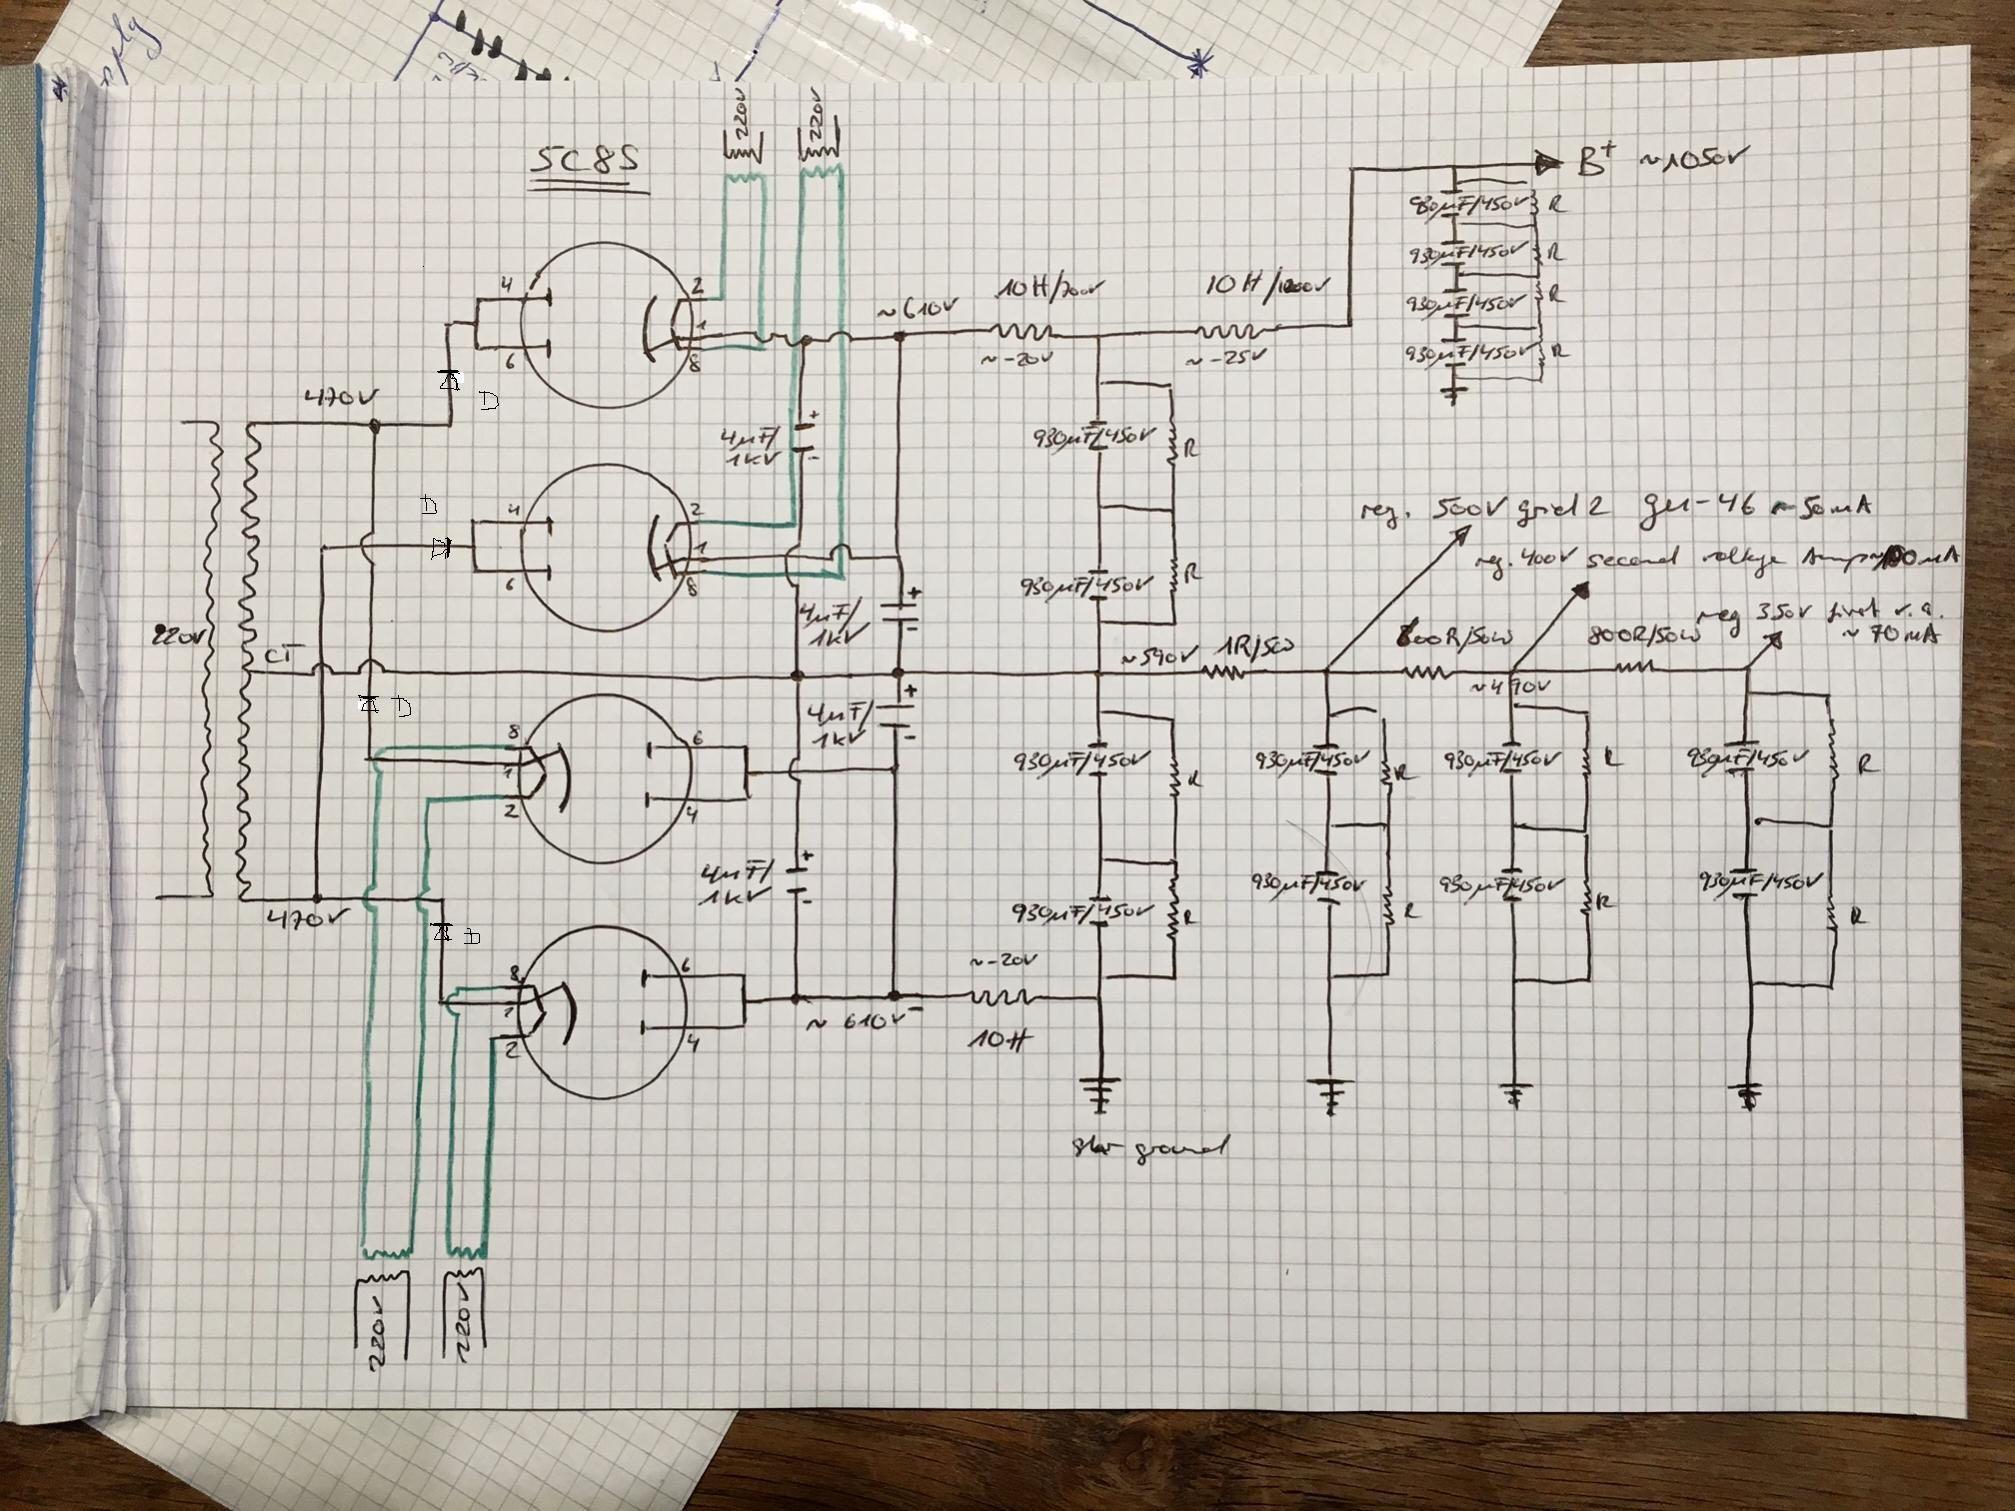 220V
220V
5C8S
B+ ~1050V
930µF/450V R
930µF/450V R
930µF/450V R
930µF/450V R
4
6
2
1
8
~610V
10H/700V
~-20V
10H/1200V
~-25V
470V
D
4µF/
1kV
930µF/450V
R
D
4
6
2
1
8
930µF/450V
R
4µF/
1kV
reg. 500V grid 2 gu-46 ~50mA
reg. 400V second voltage Amp ~100mA
reg 350V first v.a.
~70mA
220V
CT
~590V
1R/50
800R/50W
~490V
800R/50W
D
8
1
2
6
4
4µF/
1kV
930µF/450V
R
930µF/450V
R
930µF/450V
R
930µF/450V
R
4µF/
1kV
930µF/450V
R
930µF/450V
R
930µF/450V
R
930µF/450V
R
470V
D
8
1
2
6
4
~610V-
~-20V
10H
star ground
220V
220V